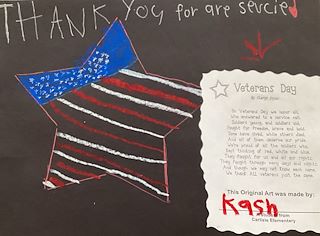 THANK YOU for are sevcied
Veterans Day
On Veterans Day we honor all,
Who answered to a service call.
Soldiers young, and soldiers old,
Fought for freedom, brave and bold.
Some have lived, while others died,
And all of them deserve our pride.
We're proud of all the soldiers who,
Kept thinking of red, white and blue.
They fought for us and all our rights,
They fought through many days and nights.
And though we may not know each name,
We thank ALL veterans just the same.
This Original Art was made by:
Kash
from
Carlisle Elementary